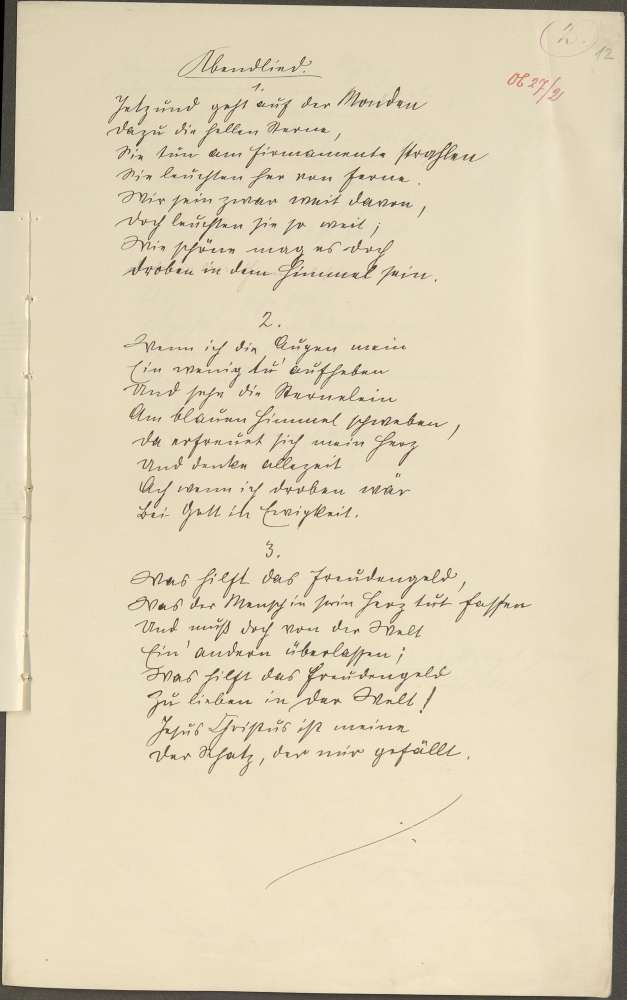 2.
12
OB 27/2
Abendlied.
1.
Jetzund geht auf der Monden
Dazu die hellen Sterne,
Sie tun am Firmamente strahlen
Sie leuchten her von ferne.
Wir sein zwar weit davon,
Doch leuchten sie so weit;
Wie schöne mag es doch
droben in dem Himmel sein.
2.
Wenn ich die Augen mein
Ein wenig tu' aufheben
Und sehe die Sternelein
Am blauen Himmel schweben,
Da erfreuet sich mein Herz
Und denke allezeit
Ach wenn ich droben wär
Bei Gott in Ewigkeit.
3.
Was hilft das Freudengeld,
Was der Mensch in sein Herz tut fassen
Und muß doch von der Welt
Ein' andern überlassen;
Was hilft das Freudengeld
Zu lieben in der Welt!
Jesus Christus ist meine
Der Schatz, der mir gefällt.